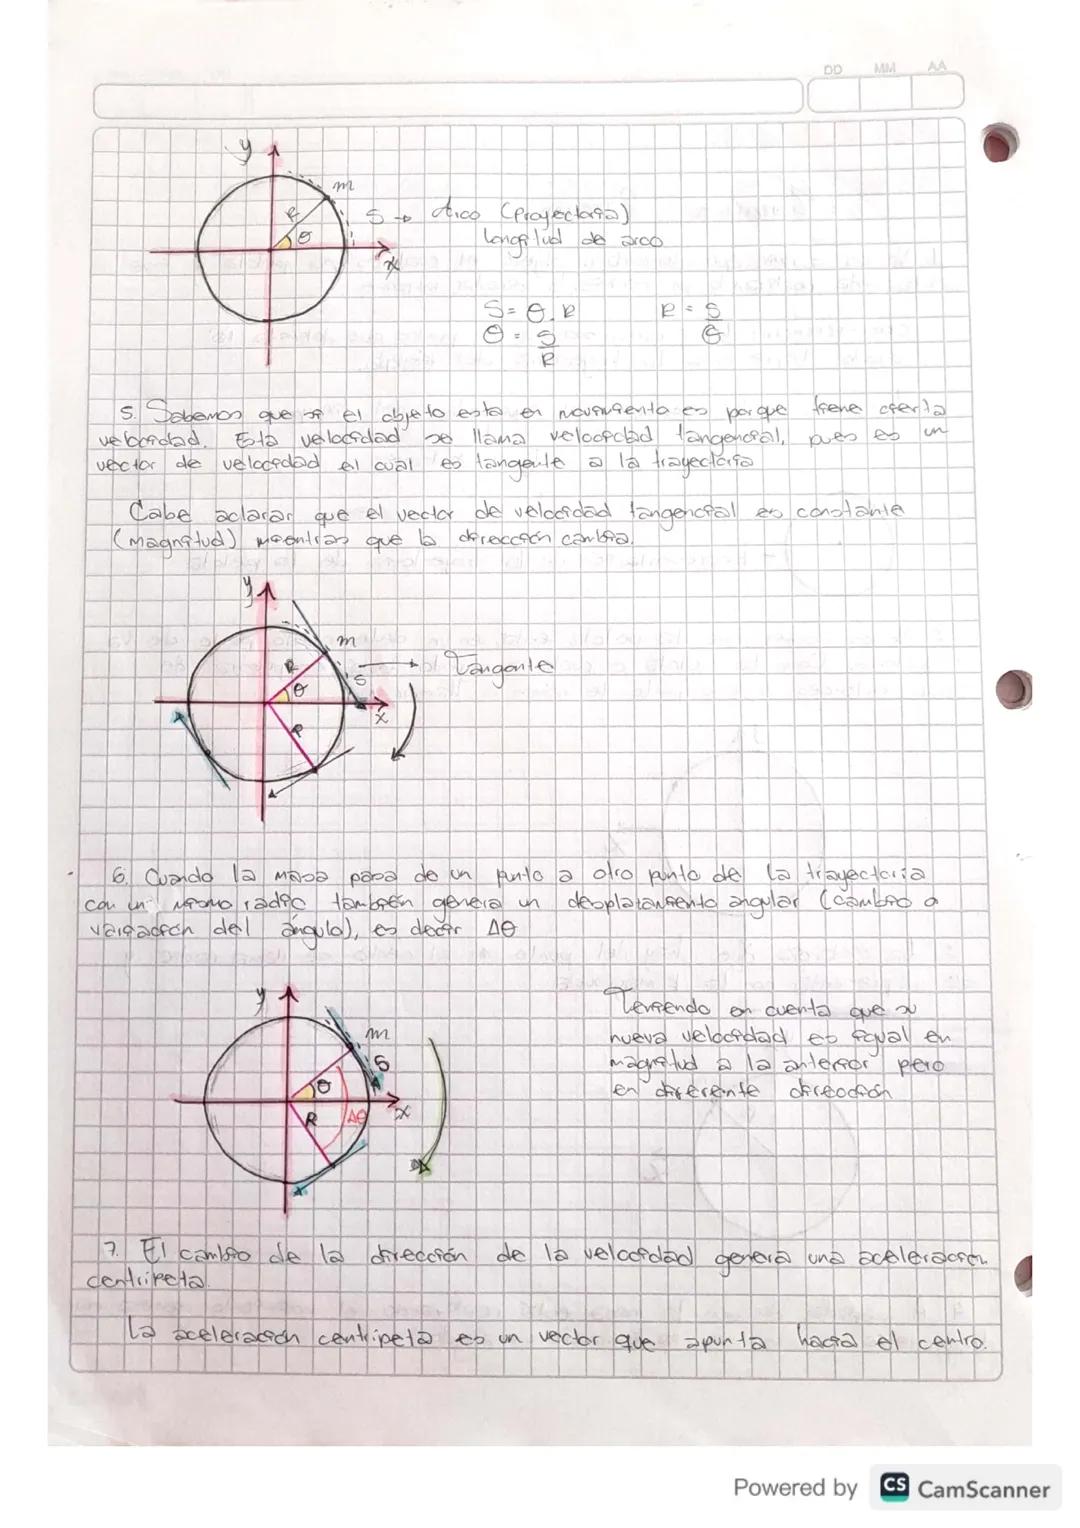 DD MM AA
y
m
R
θ
x
S → Arco (Proyectoria)
longitud de arco
S = θ . R
R = S/θ
θ = S/R
5. Sabemos que si el objeto esta en movimiento es porque tiene cierta
velocidad. Esta velocidad se llama velocidad tangencial, pues es un
vector de velocidad el cual es tangente a la trayectoria
Cabe aclarar que el vector de velocidad tangencial es constante
(magnitud) mientras que la dirección cambia.
y
m
R
θ
S → Tangente
x
R
6. Cuando la masa pasa de un punto a otro punto de la trayectoria
con un mismo radio también genera un desplazamiento angular (cambio o
variación del ángulo), es decir Δθ
y
m
S
θ
R
Δθ
x
Teniendo en cuenta que su
nueva velocidad es igual en
magnitud a la anterior pero
en diferente dirección
7. El cambio de la dirección de la velocidad genera una aceleración
centripeta.
La aceleración centripeta es un vector que apunta hacia el centro.
Powered by CS CamScanner